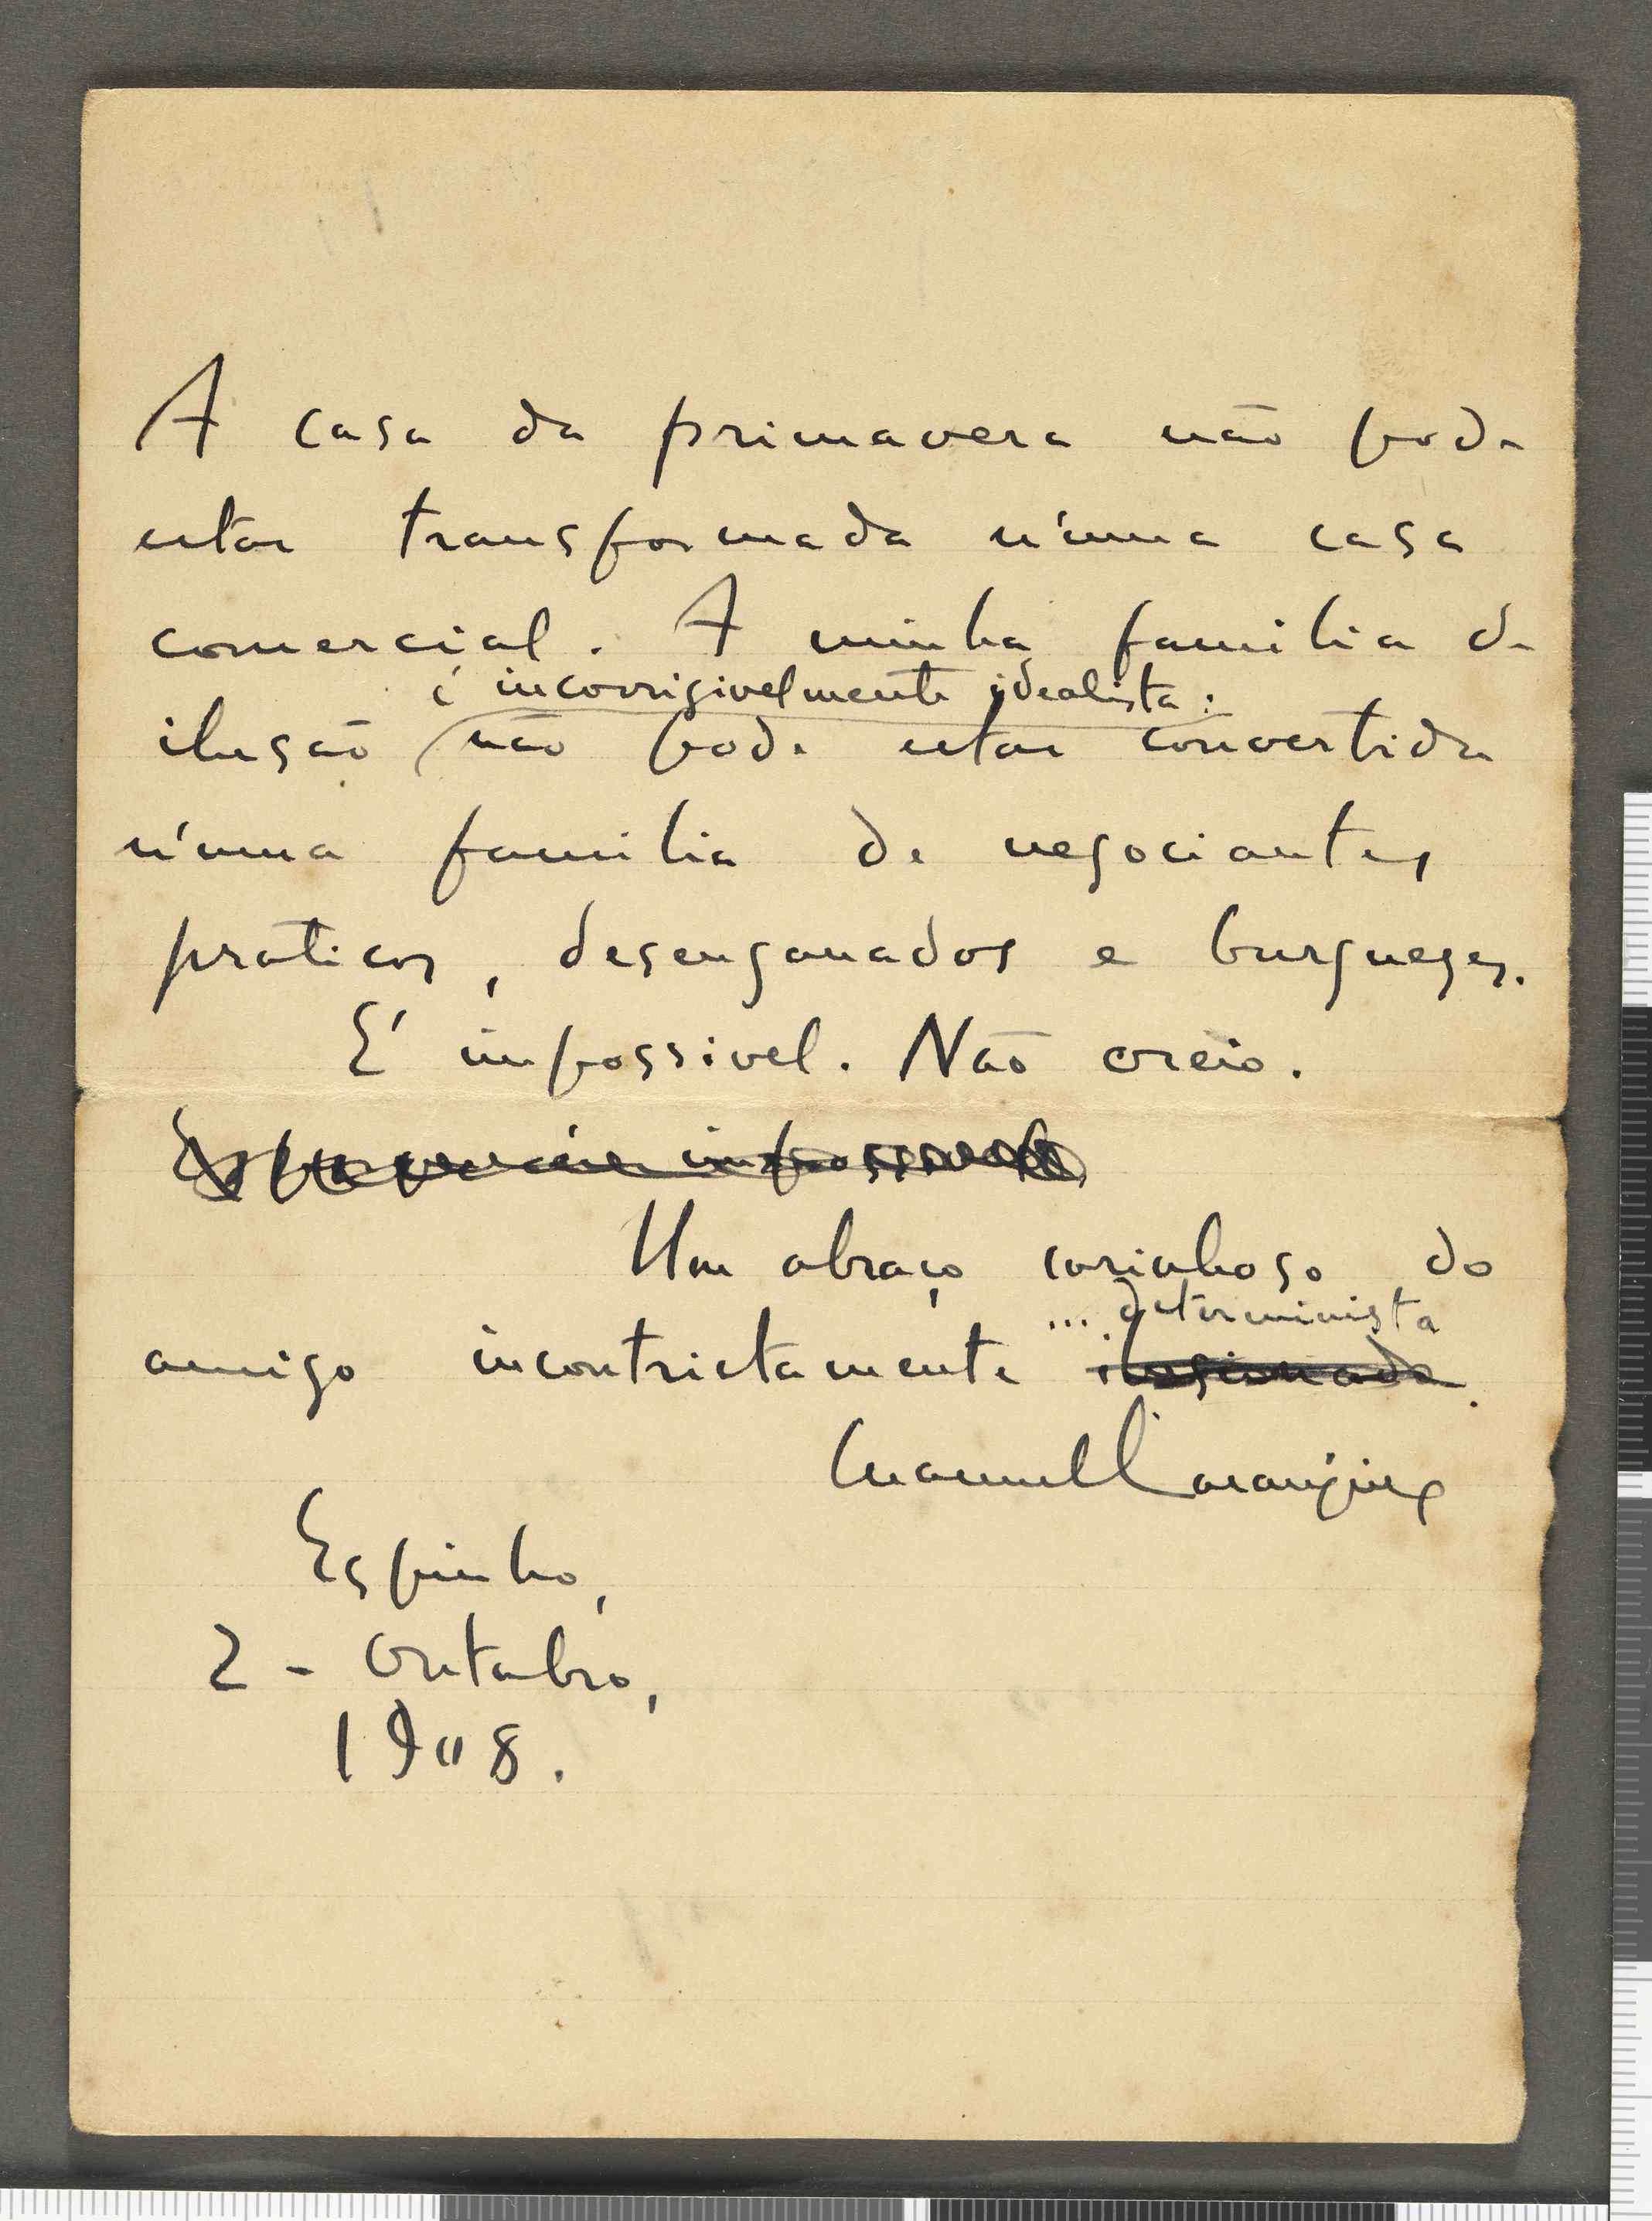 A casa da primavera não pode
estar transformada n'uma casa
comercial. A minha familia da
é incorrigivelmente idealista:
ilusão não pode estar convertida
n'uma familia de negociantes
praticos, desenganados e burgueses.
E' impossivel. Não creio.
Um abraço carinhoso do
... determinista
amigo incontrictamente ilusionado.
Manuel Laranjeira
Espinho,
2 - Outubro,
1908.